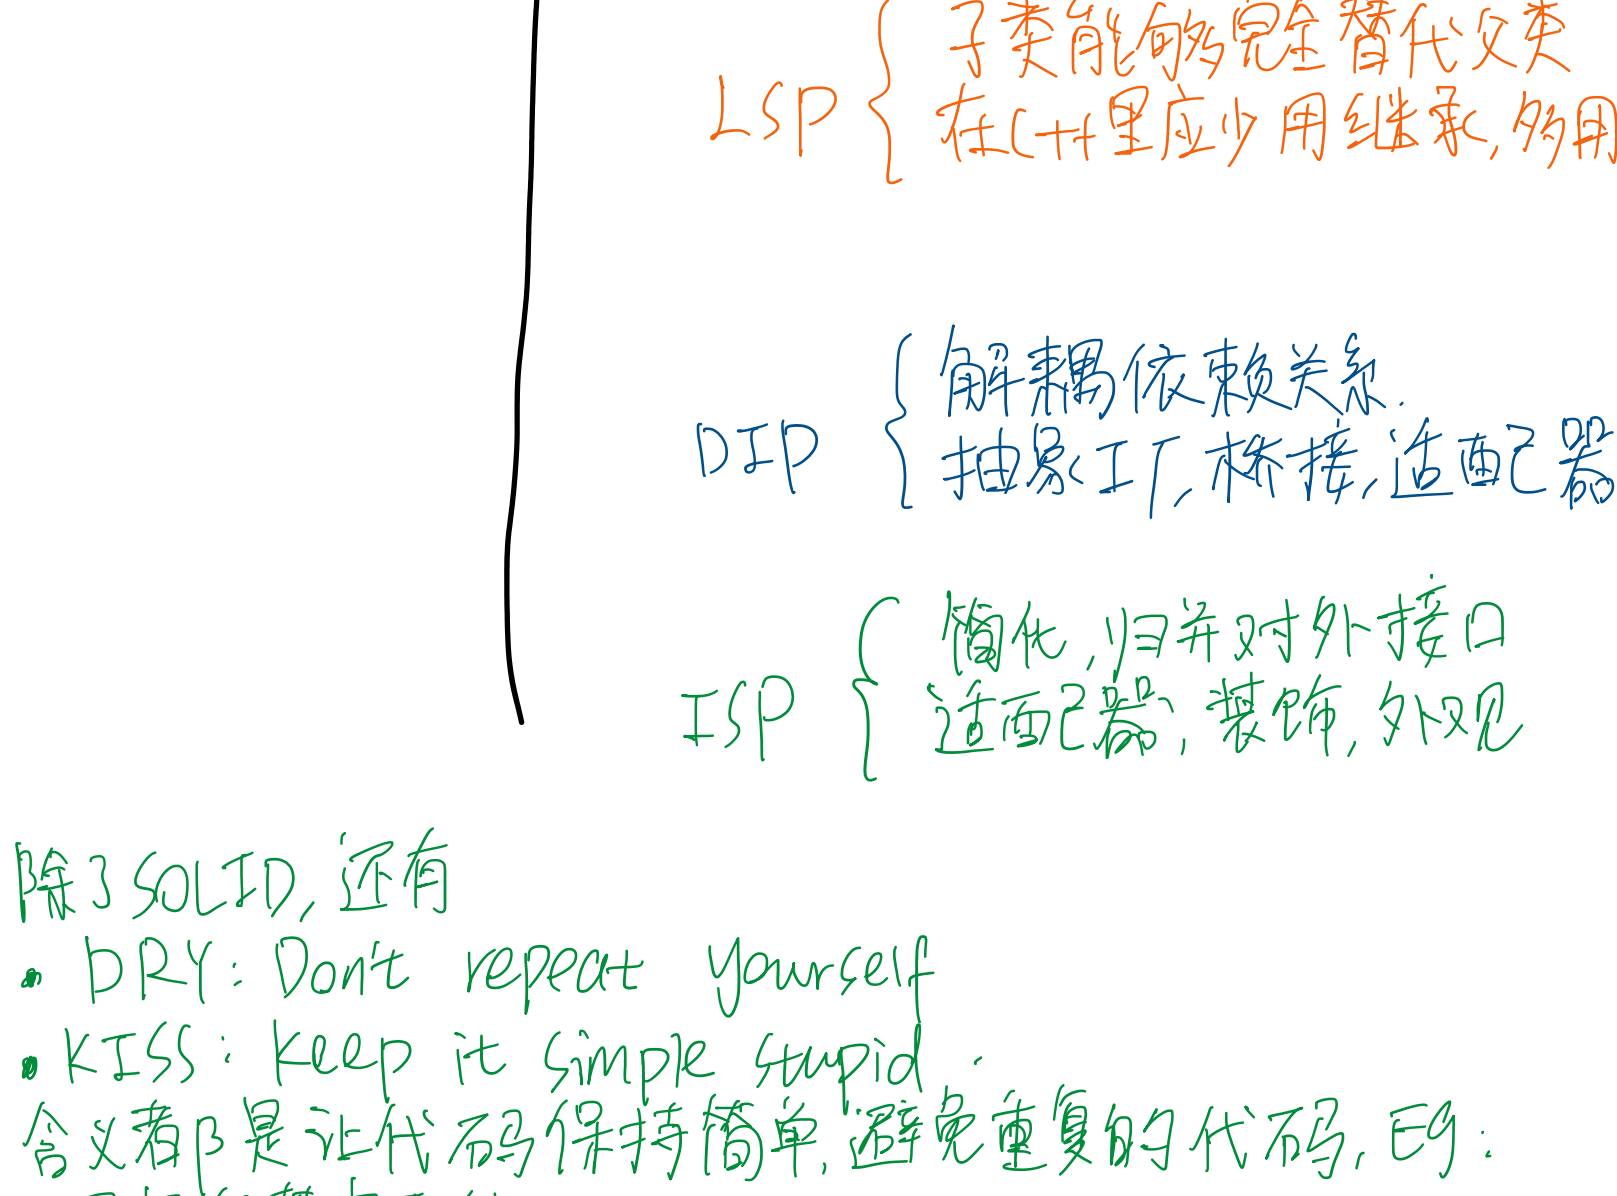 子类能够完全替代父类
LSP
在C++里应少用继承,多用
解耦依赖关系.
DIP
抽象工厂,桥接,适配器
简化,归并对外接口
ISP
适配器,装饰,外观
除了SOLID,还有
• DRY: Don't repeat yourself
• KISS: Keep it simple stupid.
含义都是让代码保持简单,避免重复的代码,Eg: